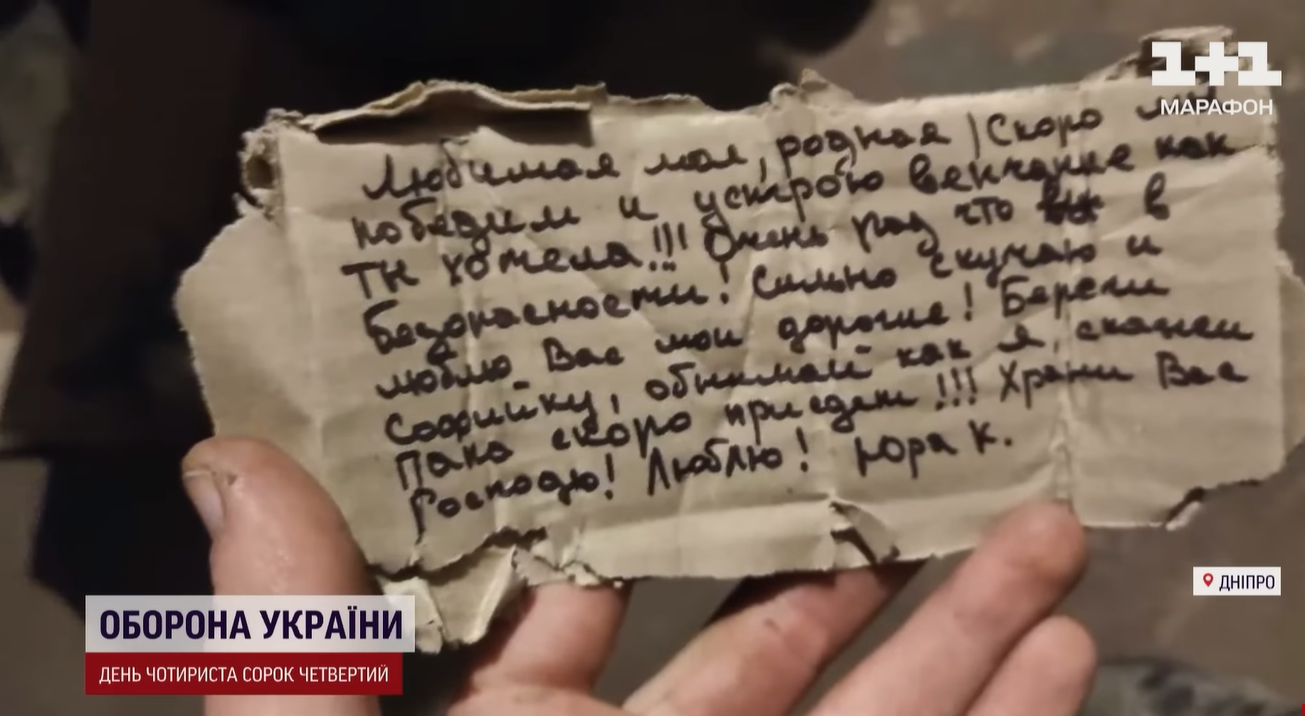 1+1
МАРАФОН
Любимая моя, родная! Скоро мы
победим и устрою венчание как
ты хотела!!! Очень рад что вы в
безопасности! Сильно скучаю и
люблю Вас мои дорогие! Береги
Софийку, обнимай как я, скажи
папа скоро приедет!!! Храни Вас
Господь! Люблю! Юра К.
ДНІПРО
ОБОРОНА УКРАЇНИ
ДЕНЬ ЧОТИРИСТА СОРОК ЧЕТВЕРТИЙ